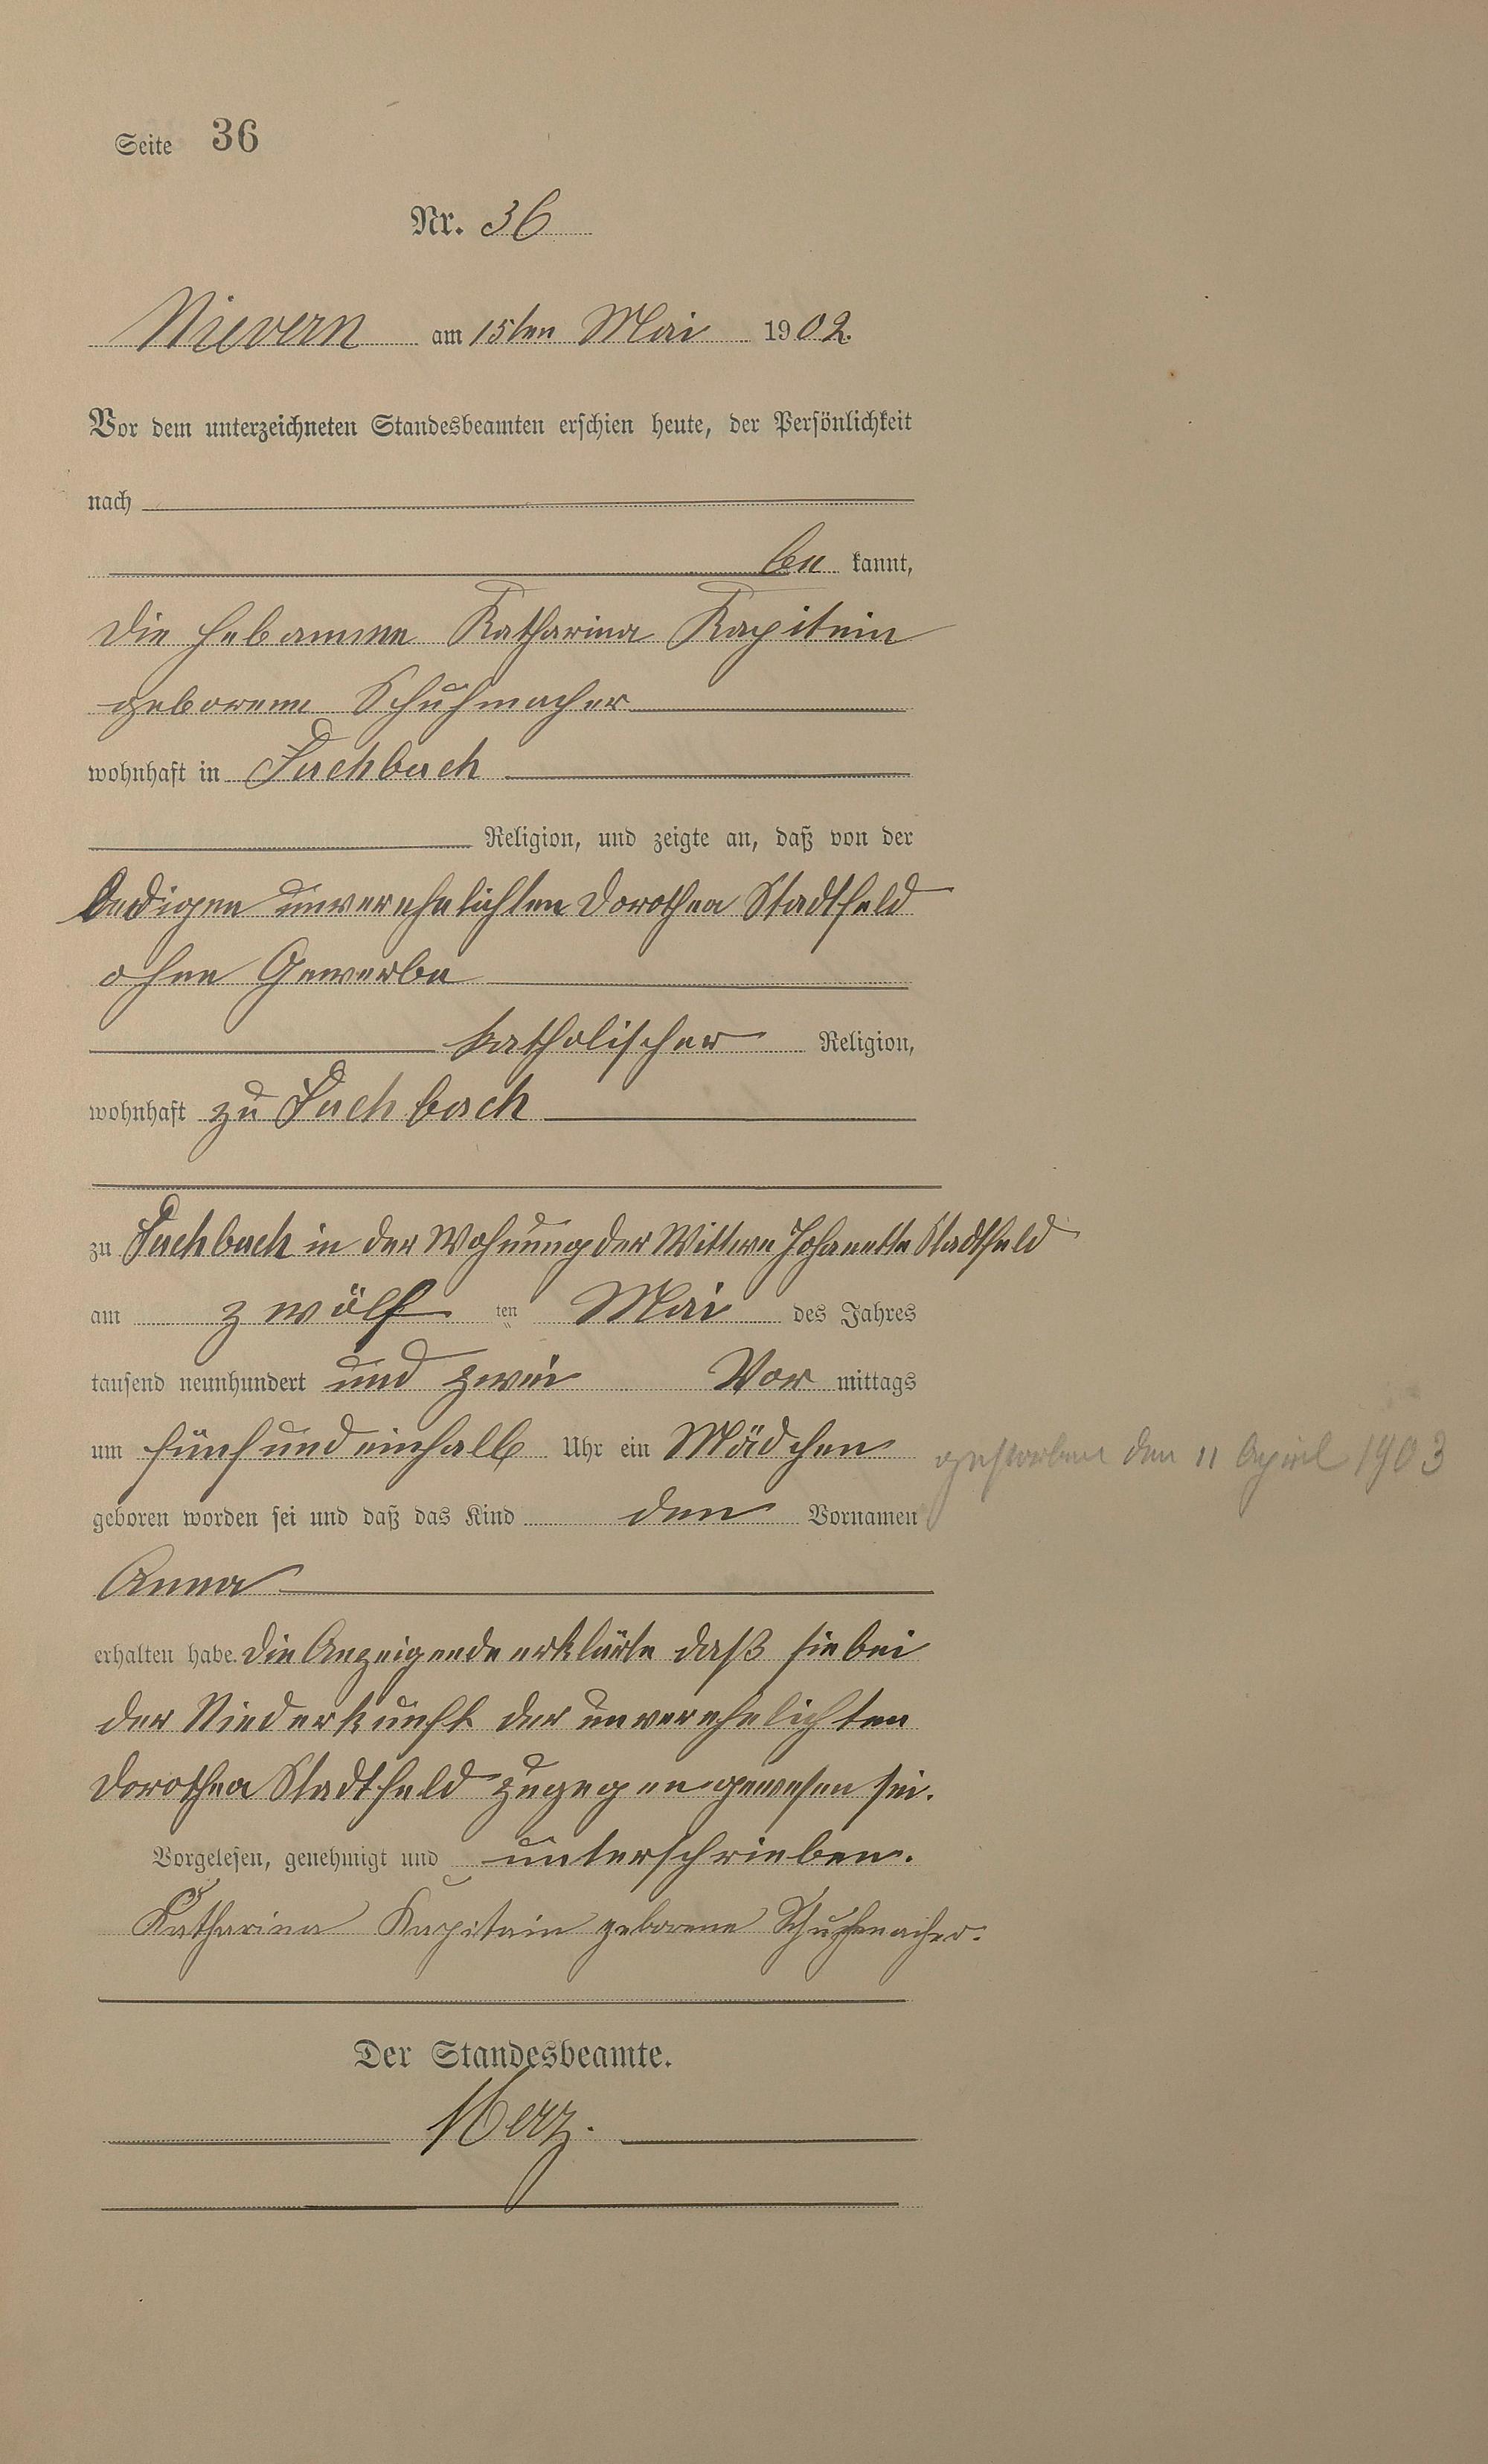 Seite 36
Nr. 36
Nievern am 15ten Mai 1902.
Vor dem unterzeichneten Standesbeamten erschien heute, der Persönlichkeit
nach
be kannt,
die Hebamme Katharina Kapitain
geborene Schuhmacher
wohnhaft in Fachbach
Religion, und zeigte an, daß von der
ledigen unverehelichten Dorothea Stadtfeld
ohne Gewerbe
katholischer Religion,
wohnhaft zu Fachbach
zu Fachbach in der Wohnung der Wittwe Johanette Stadtfeld
am zwölf ten Mai des Jahres
tausend neunhundert und zwei Vor mittags
um fünf und einhalb Uhr ein Mädchen
gestorben den 11 April 1903
geboren worden sei und daß das Kind den Vornamen
Anna
erhalten habe. Die Anzeigende erklärte daß sie bei
der Niederkunft der unverehelichten
Dorothea Stadtfeld zugegen gewesen sei.
Vorgelesen, genehmigt und unterschrieben.
Katharina Kapitain geborene Schuhmacher.
Der Standesbeamte.